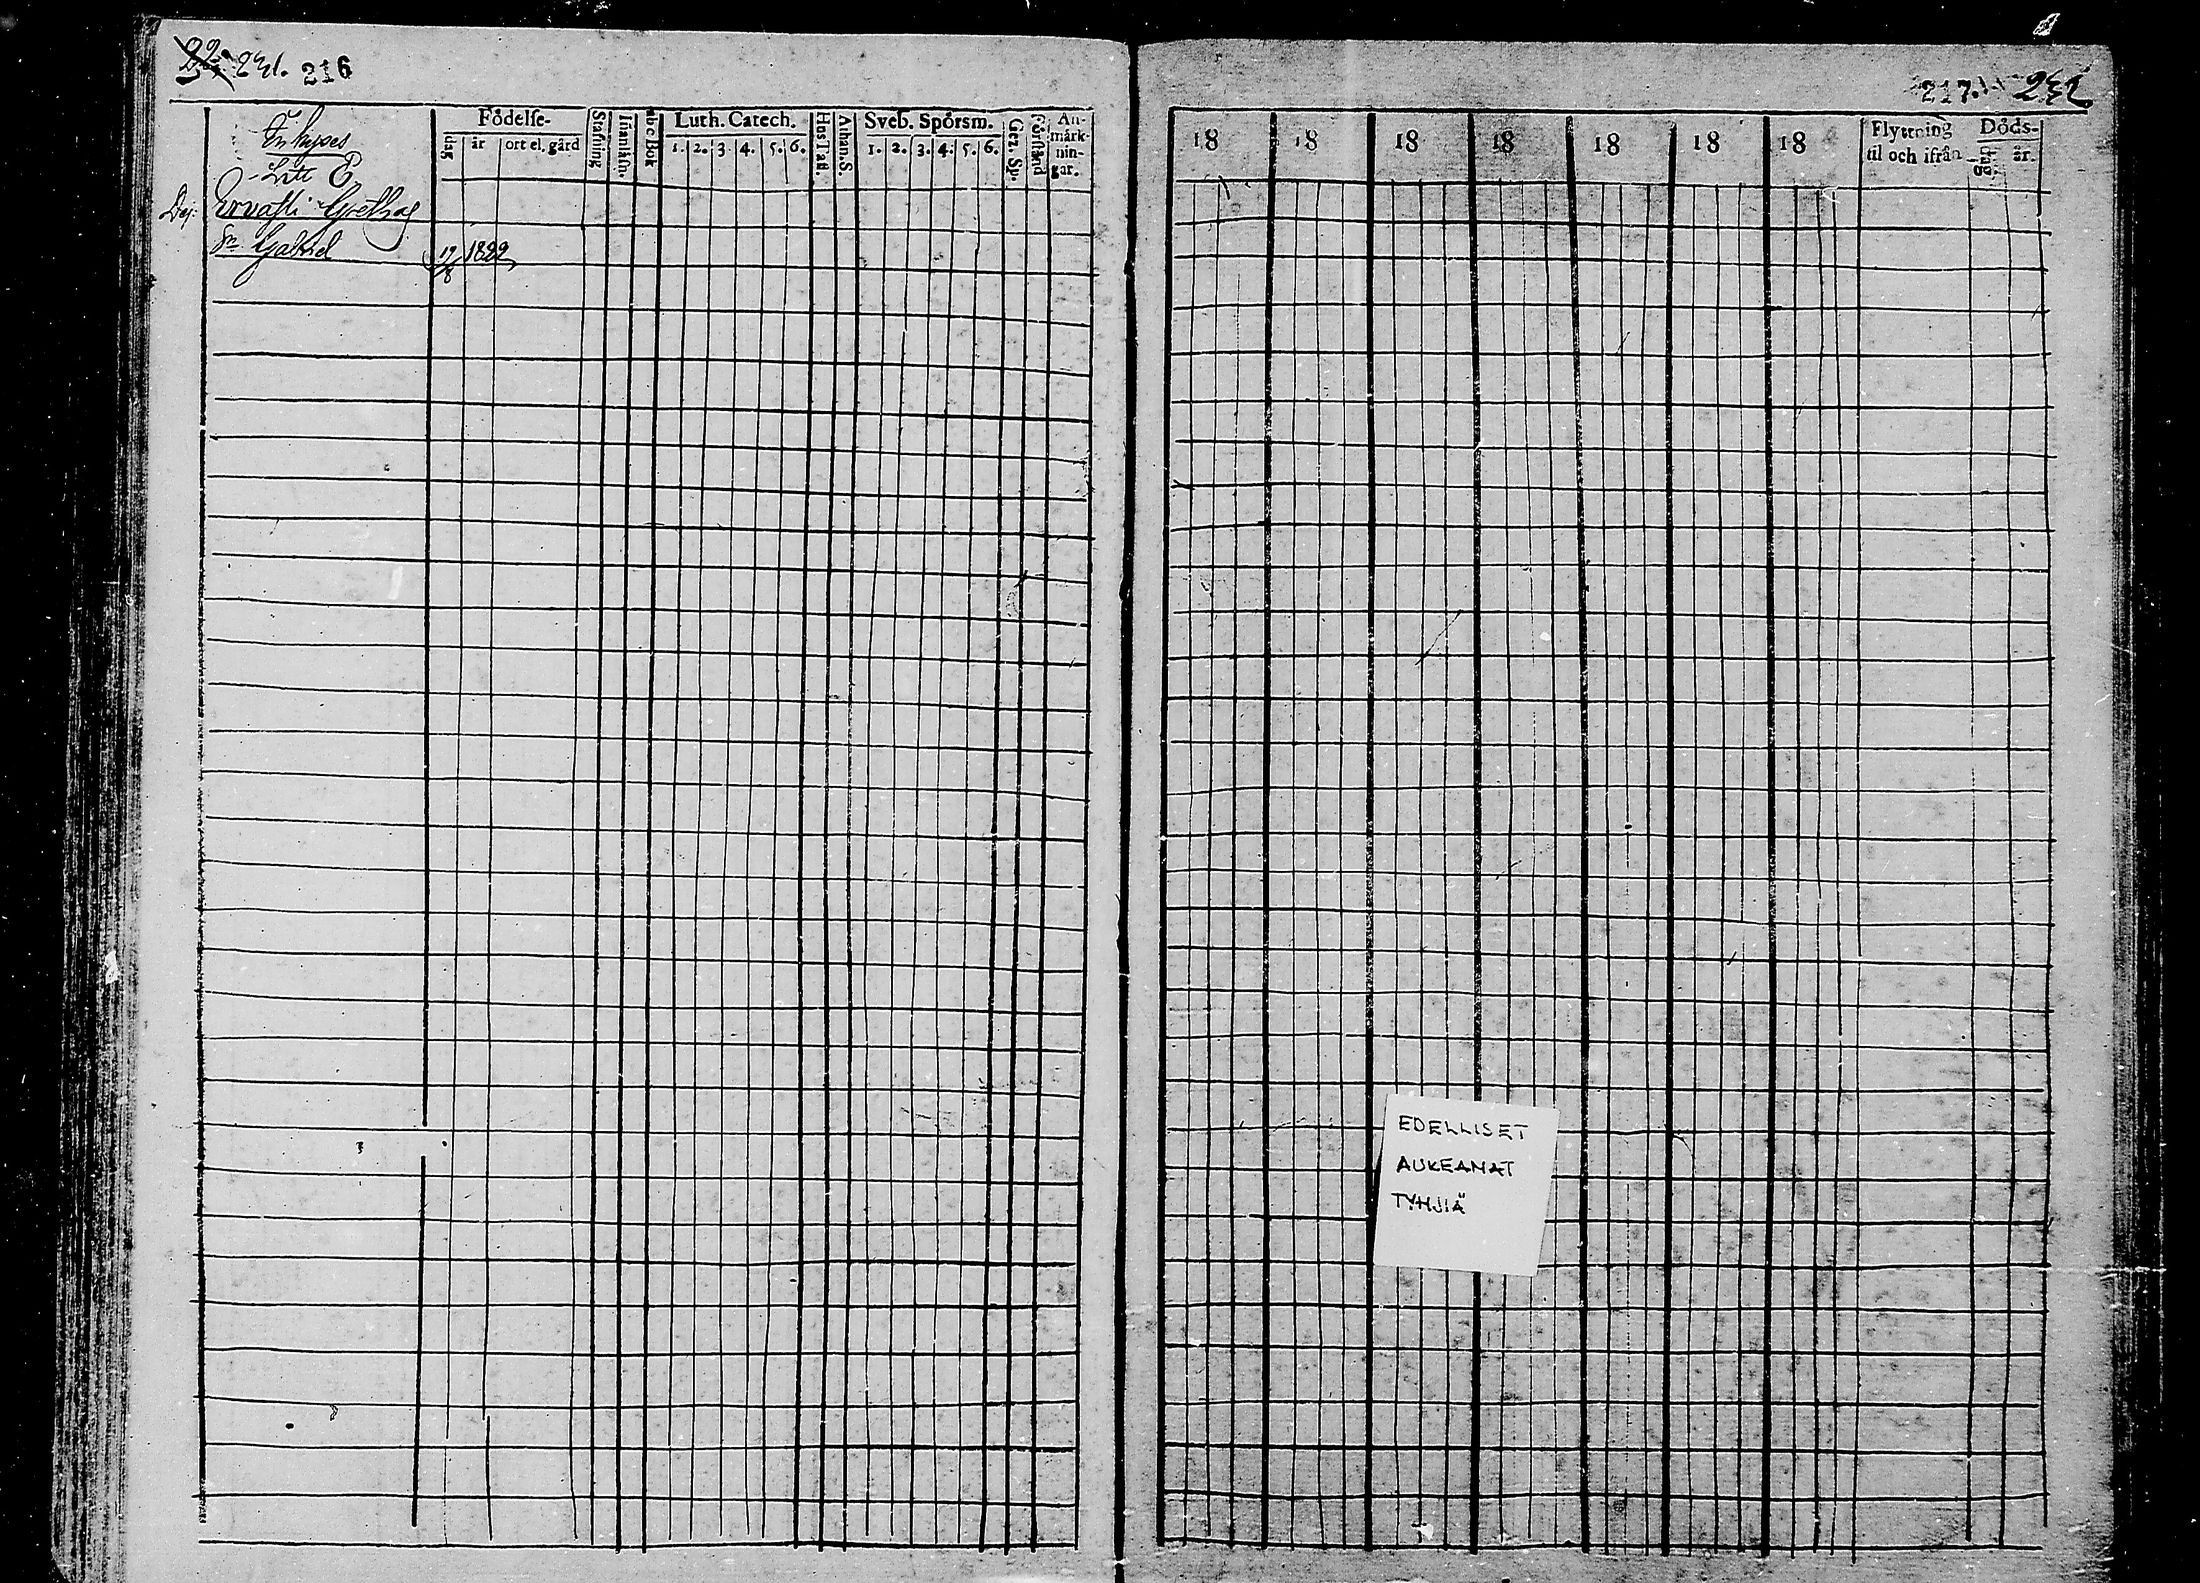 231. 216
Födelse-
dag år ort el. gård
Stafning
Innanläsn.
abc Bok
Luth. Catech.
1. 2. 3. 4. 5. 6.
Hus Tafl.
Athan. S.
Sveb. Spörsm.
1. 2. 3. 4. 5. 6.
Gez. Sp.
Förstånd
An-
märk-
nin-
gar.
Inhyses
Litt
Ervasti Greta
Sn Gabriel 17/8 1822
217. 232
18 18 18 18 18 18 18
Flyttning
til och ifrån
Döds-
dag år.
EDELLISET
AUKEAMAT
TYHJIÄ